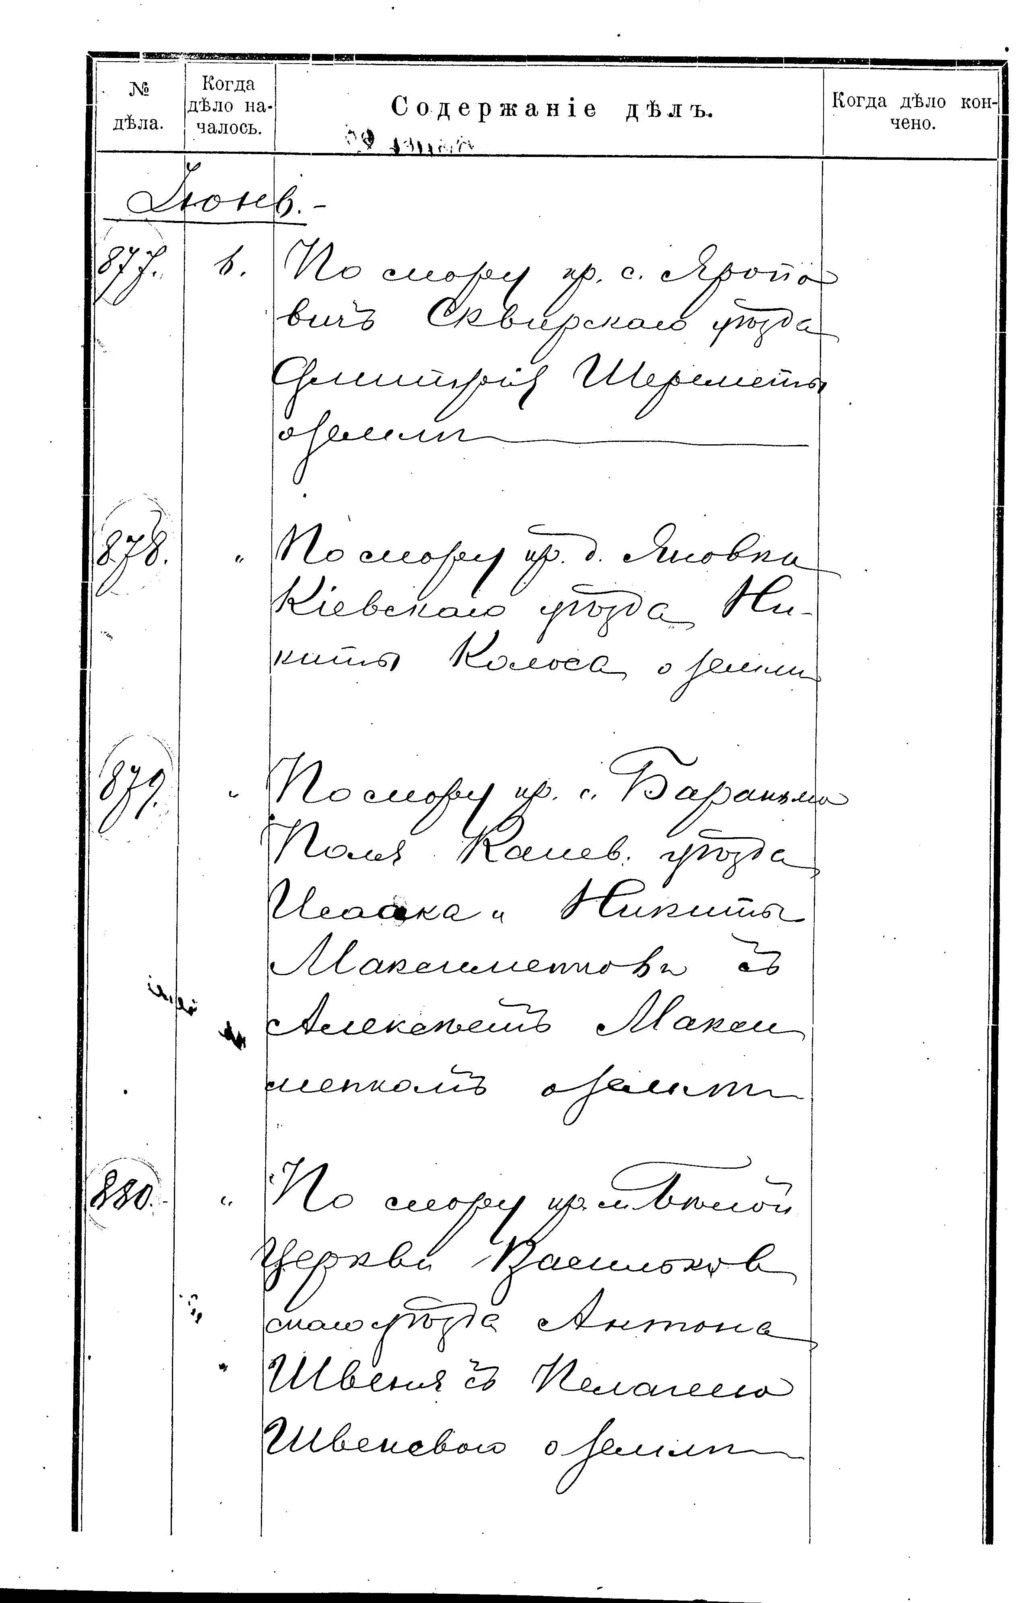 № дѣла.
Когда дѣло началось.
Содержаніе дѣлъ.
Когда дѣло кончено.
Іюнь.
877. 6. По спору кр. с. Яропо
вичъ Сквирскаго уѣзда
Дмитрія Шеремета
о землѣ
878. " По спору кр. д. Яновки
Кіевскаго уѣзда Ни-
киты Колоса о землѣ
879. " По спору кр. с. Бараньяго
Поля Канев. уѣзда
Исаака и Никиты
Максименковъ съ
Алексѣемъ Макси
менкомъ о землѣ
880. " По спору кр. м. Бѣлой
Церкви Васильков
скаго уѣзда Антона
" Швеця съ Пелагеею
Швецовою о землѣ